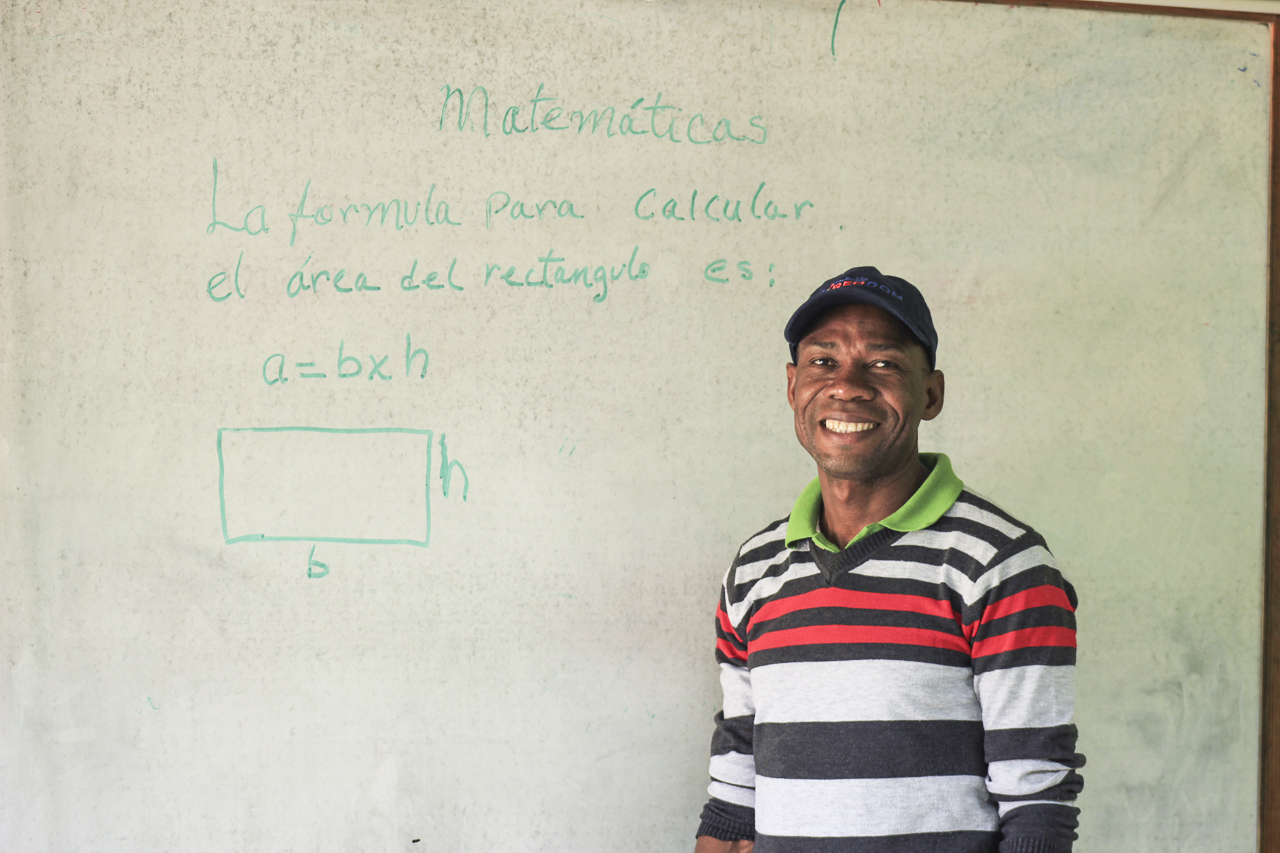 Matemáticas
La formula para Calcular
el área del rectangulo es:
a=bxh
h
b